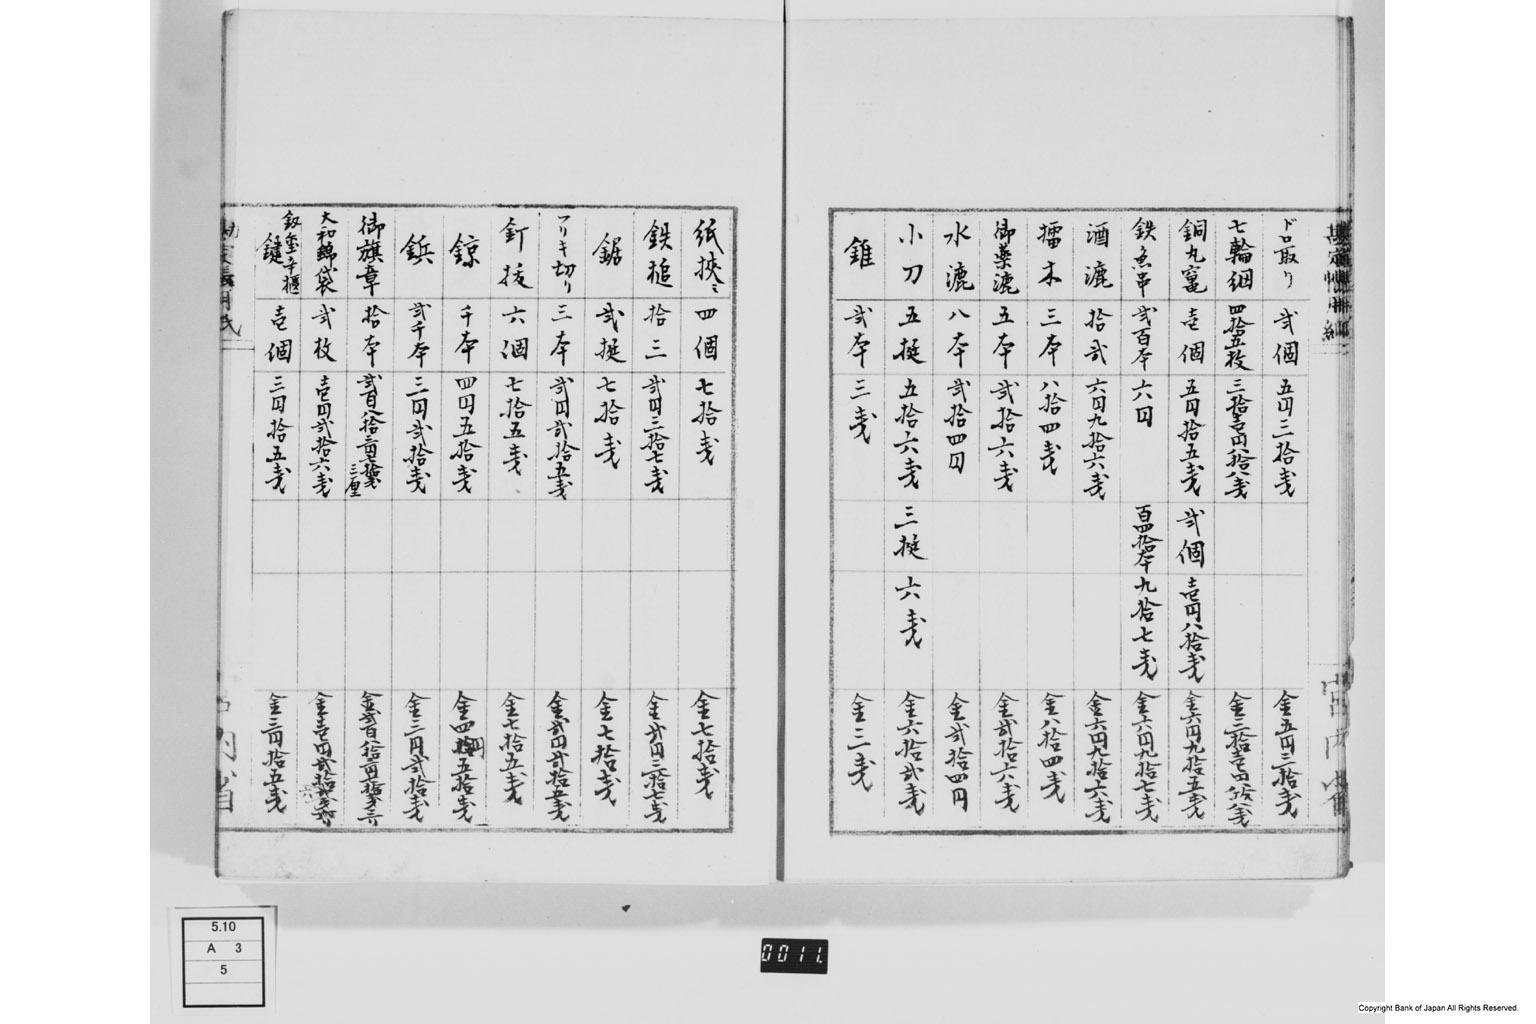 ドロ取り 弐個 五円三拾戔 金五円三拾戔
七輪網 四拾五枚 三拾壱円八拾八戔 金三拾壱円八拾八戔
銅丸竃 壱個 五円拾五戔 弐個 壱円八拾戔 金六円九拾五戔
鉄魚串 弐百本 六円 百四拾本 九拾七戔 金六円九拾七戔
酒漉 拾弐 六円九拾六戔 金六円九拾六戔
擂木 三本 八拾四戔 金八拾四戔
御薬漉 五本 弐拾六戔 金弐拾六戔
水漉 八本 弐拾四円 金弐拾四円
小刀 五挺 五拾六戔 三挺 六戔 金六拾弐戔
錐 弐本 三戔 金三戔
宮内省
紙挾ミ 四個 七拾戔 金七拾戔
鉄槌 拾三 弐円三拾七戔 金弐円三拾七戔
鋸 弐挺 七拾戔 金七拾戔
フリキ切り 三本 弐円弐拾五戔 金弐円弐拾五戔
釘抜 六個 七拾五戔 金七拾五戔
鯨 千本 四円五拾戔 金四円五拾戔
鋲 弐千本 三円弐拾戔 金三円弐拾戔
御旗章 拾本 弐百八拾三円七拾弐戔三厘
大和錦袋 弐枚 壱円弐拾六戔 金壱円弐拾六戔
釼璽辛櫃鍵 壱個 三円拾五戔 金三円拾五戔
宮内省
5.10
A 3
5
0011.
Copyright Bank of Japan All Rights Reserved.